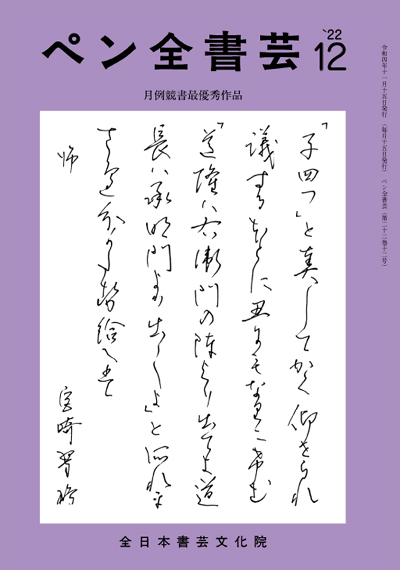 ペン全書芸
'22
12
月例競書最優秀作品
「子四つ」と奏してかく仰せられ
議するほどに丑にもなりにけむ
「道隆は右衛門の陣より出でよ道
長は承明門より出でよ」とそれを
さへ分かたせ給へば
宮崎
全日本書芸文化院
令和四年十一月十五日発行(毎月十五日発行)ペン全書芸(第二十二巻十二号)